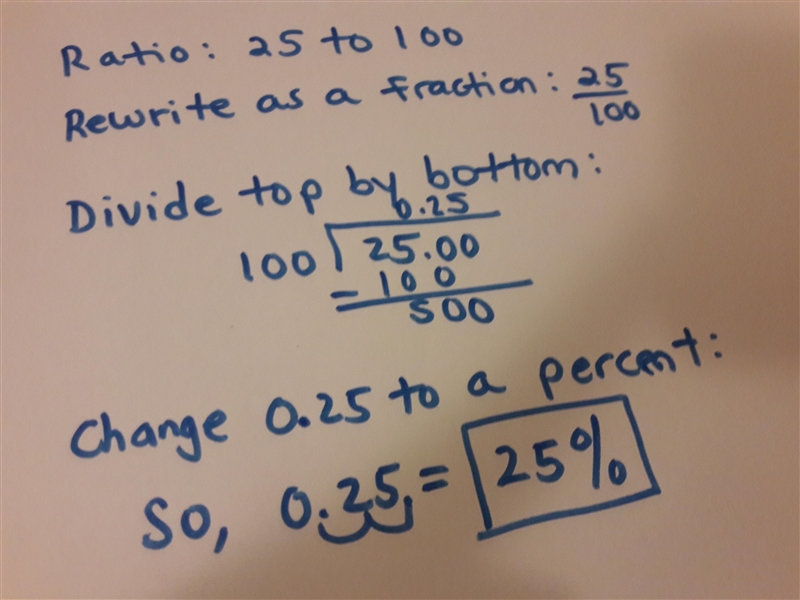 Ratio: 25 to 100
Rewrite as a fraction: 25/100
Divide top by bottom:
0.25
100 25.00
- 100
500
Change 0.25 to a percent:
So, 0.25. = 25%